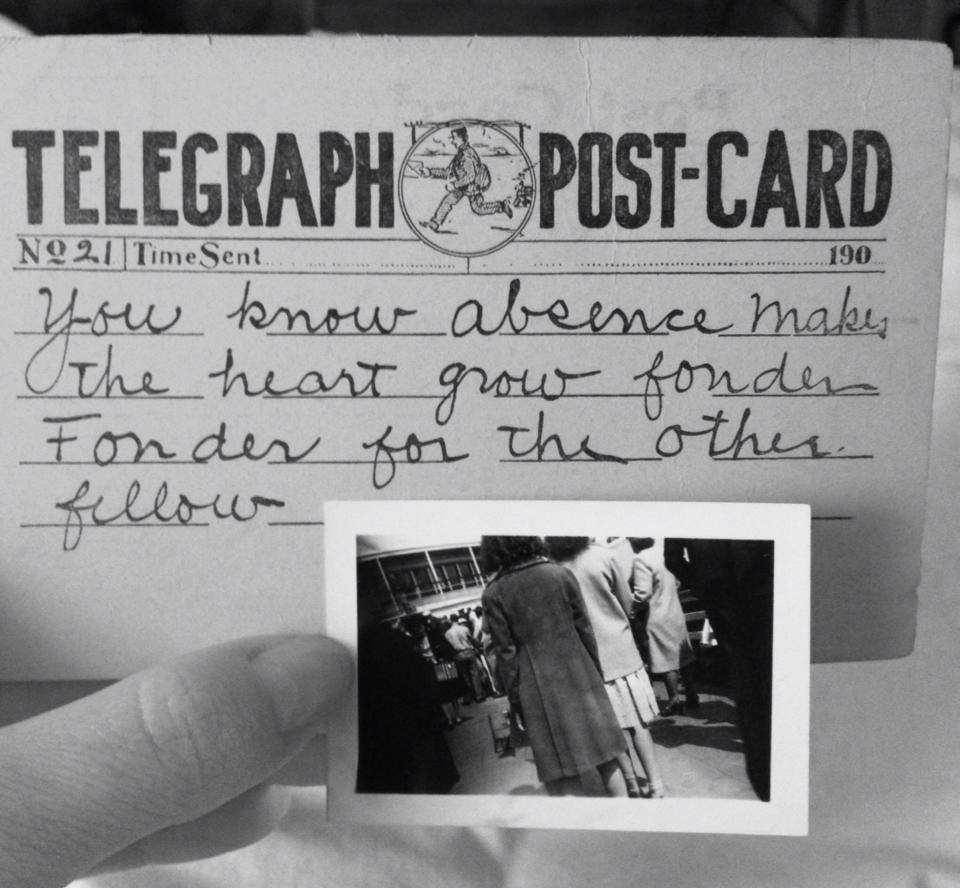 TELEGRAPH POST-CARD
No 21 Time Sent 190
You know absence makes
the heart grow fonder
Fonder for the other
fellow